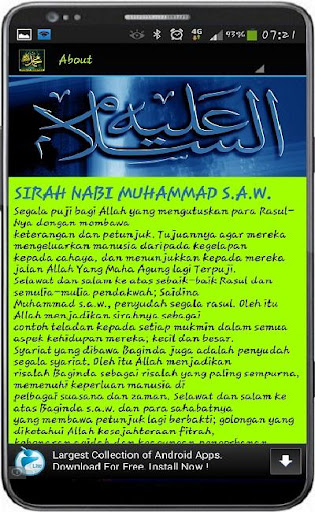 4G
93%
07:21
About
السلام عليه
SIRAH NABI MUHAMMAD S.A.W.
Segala puji bagi Allah yang mengutuskan para Rasul-
Nya dengan membawa
keterangan dan petunjuk. Tujuannya agar mereka
mengeluarkan manusia daripada kegelapan
kepada cahaya, dan menunjukkan kepada mereka
jalan Allah Yang Maha Agung lagi Terpuji.
Selawat dan salam ke atas sebaik-baik Rasul dan
semulia-mulia pendakwah; Saidina
Muhammad s.a.w., penyudah segala rasul. Oleh itu
Allah menjadikan sirahnya sebagai
contoh teladan kepada setiap mukmin dalam semua
aspek kehidupan mereka; kecil dan besar.
Syariat yang dibawa Baginda juga adalah penyudah
segala syariat. Oleh itu Allah menjadikan
risalah Baginda sebagai risalah yang paling sempurna,
memenuhi keperluan manusia di
pelbagai suasana dan zaman. Selawat dan salam ke
atas Baginda s.a.w. dan para sahabatnya
yang membawa petunjuk lagi berbakti; golongan yang
diketahui Allah kesejahteraan fitrah,
Largest Collection of Android Apps.
Download For Free. Install Now !